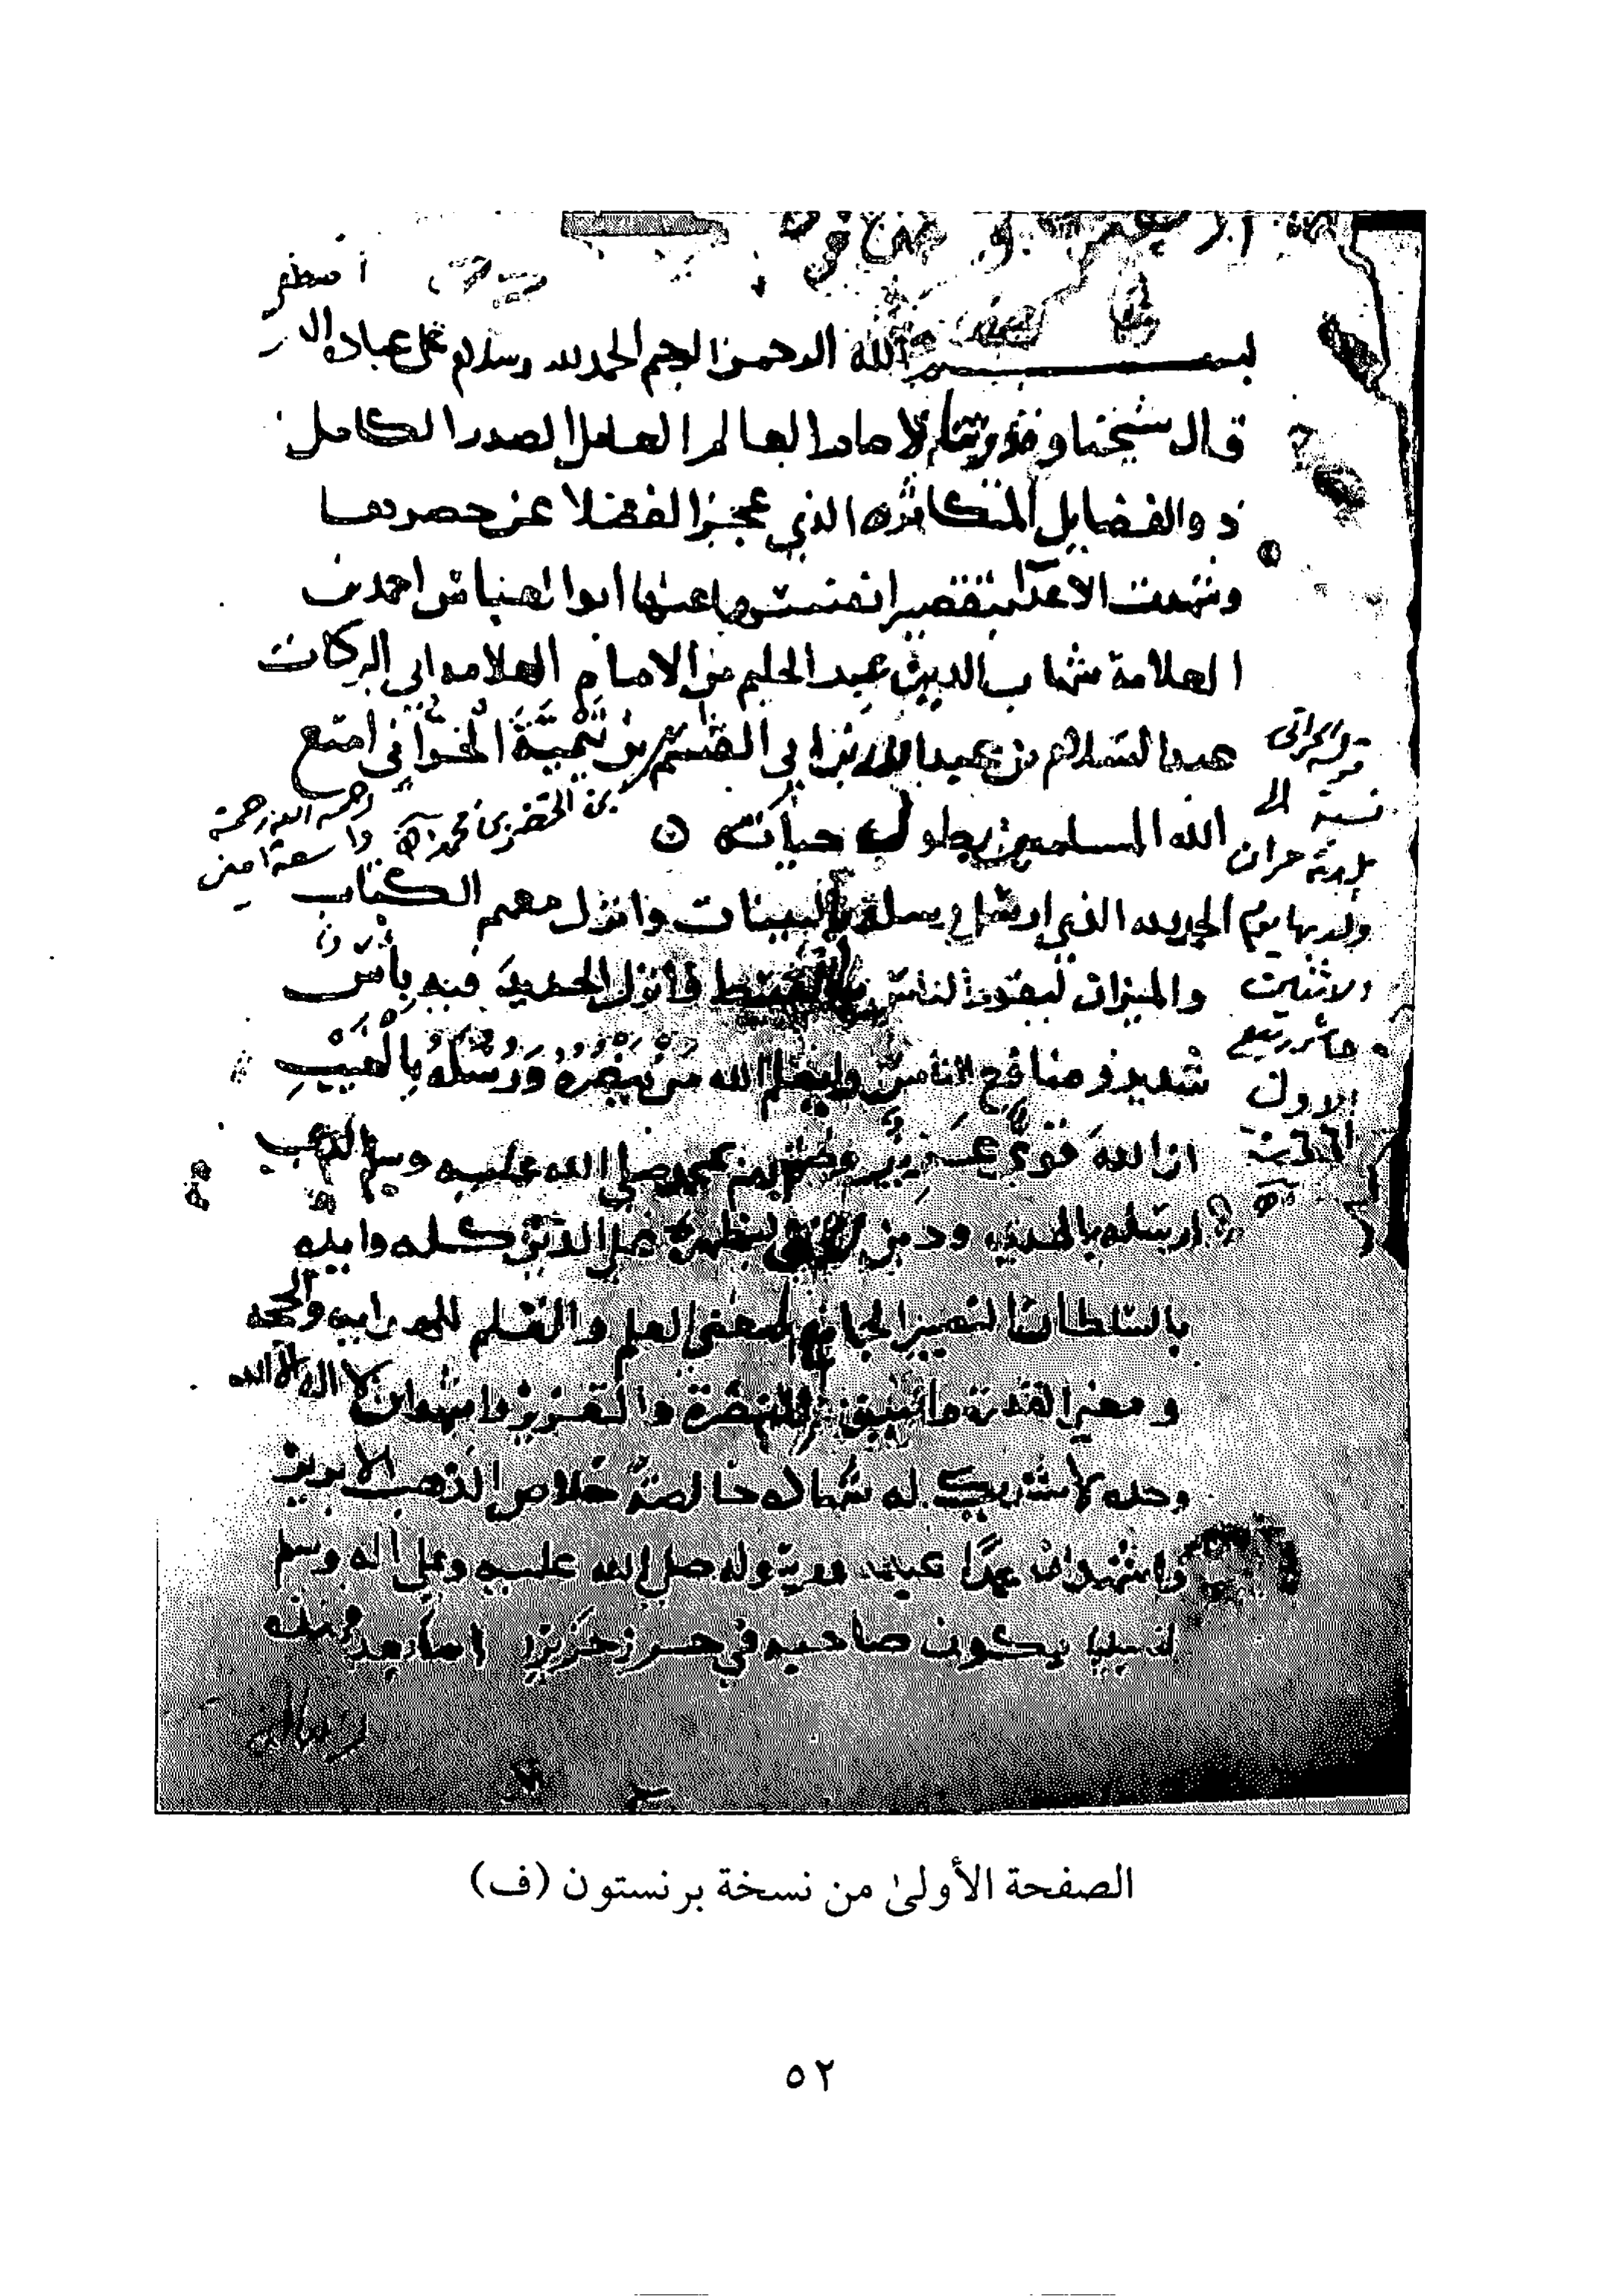 اصطفى
بسم الله الرحمن الرحيم الحمد لله وسلام على عباده الذين
قال شيخنا وقدوتنا الامام العالم العامل الصدر الكامل
ذو الفضايل المتكاثره الذي عجز الفضلا عن حصرها
وشهدت الاعدا بتقصير انفسها عنها ابو العباس احمد بن
العلامة شهاب الدين عبد الحليم بن الامام العلامه ابي البركات
عبد السلام بن عبد الله بن ابي القسم بن تيمية الحراني امتع
بن الخضر بن محمد
رحمه الله رحمة
واسعة امين
الله المسلمين بطول حياته
قوله الحراني
نسبة الى
بلدة حران
ولد بها يوم
الاثنين
عاشر ربيع
الاول
الحمد لله الذي ارسل رسله بالبينات وانزل معهم الكتاب
والميزان ليقوم الناس بالقسط وانزل الحديد فيه باس
شديد ومنافع للناس وليعلم الله من ينصره ورسله بالغيب
ان الله قوي عزيز وختمهم بمحمد صلى الله عليه وسلم الذي
ارسله بالهدى ودين الحق ليظهره على الدين كله وايده
بالسلطان النصير الجامع معنى العلم والقلم للهدايه والحجه
ومعنى القدرة والسيف للنصرة والتعزير واشهد ان لا اله الا الله
وحده لا شريك له شهادة خالصة خلاص الذهب الابريز
واشهد ان محمدًا عبده ورسوله صلى الله عليه وعلى اله وسلم
تسليما يكون صاحبه في حرز حريز اما بعد فهذه
رسالة
الصفحة الأولىٰ من نسخة برنستون (ف)
٥٢